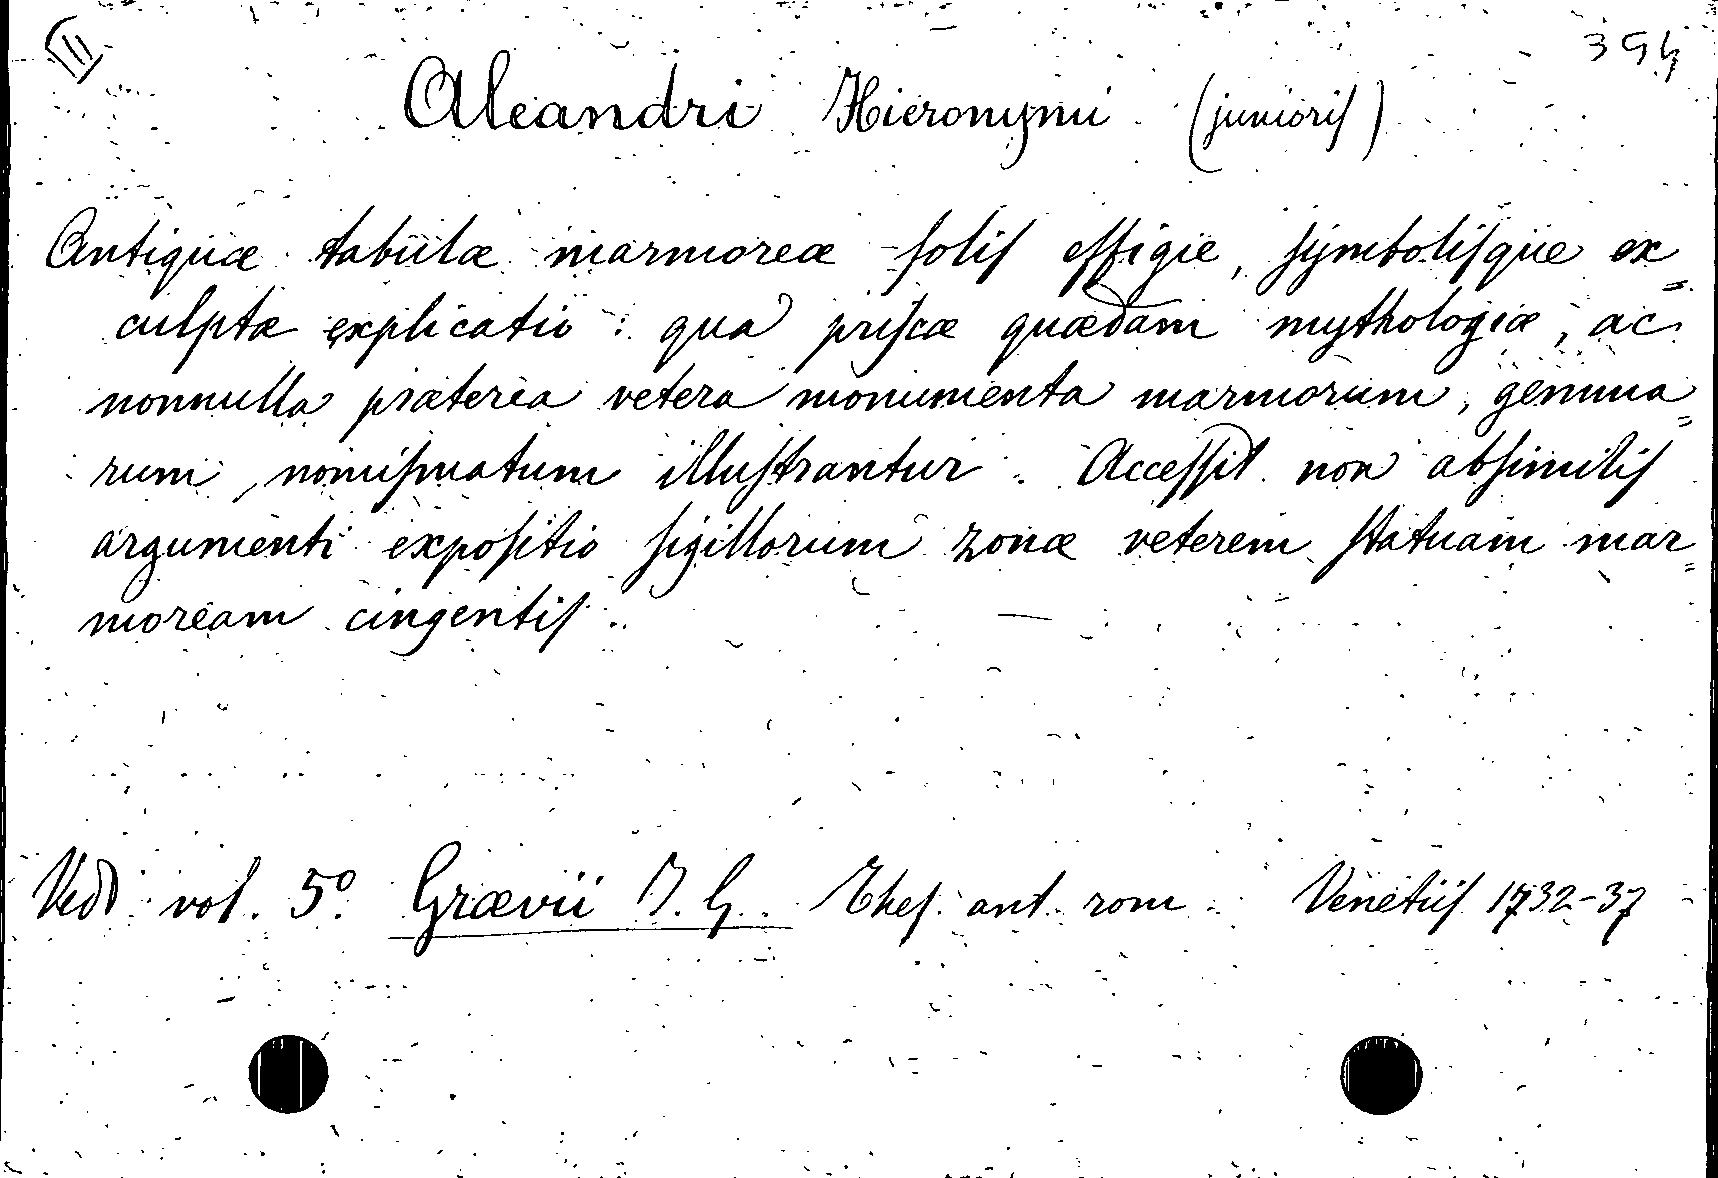 II
394
Aleandri Hieronymi (junioris)
Antiquæ tabulæ marmoreæ solis effigie, symbolisque ex=
culptæ explicatio: qua priscæ quædam mythologiæ, ac
nonnulla præterea vetera monumenta marmorum, gemma=
rum, nomismatum illustrantur. Accessit non absimilis
argumenti expositio sigillorum zonæ veterem statuam mar=
moream cingentis.
Vedi vol. 5º. Grævii J. G. Thes. ant. rom. Venetiis 1732-37